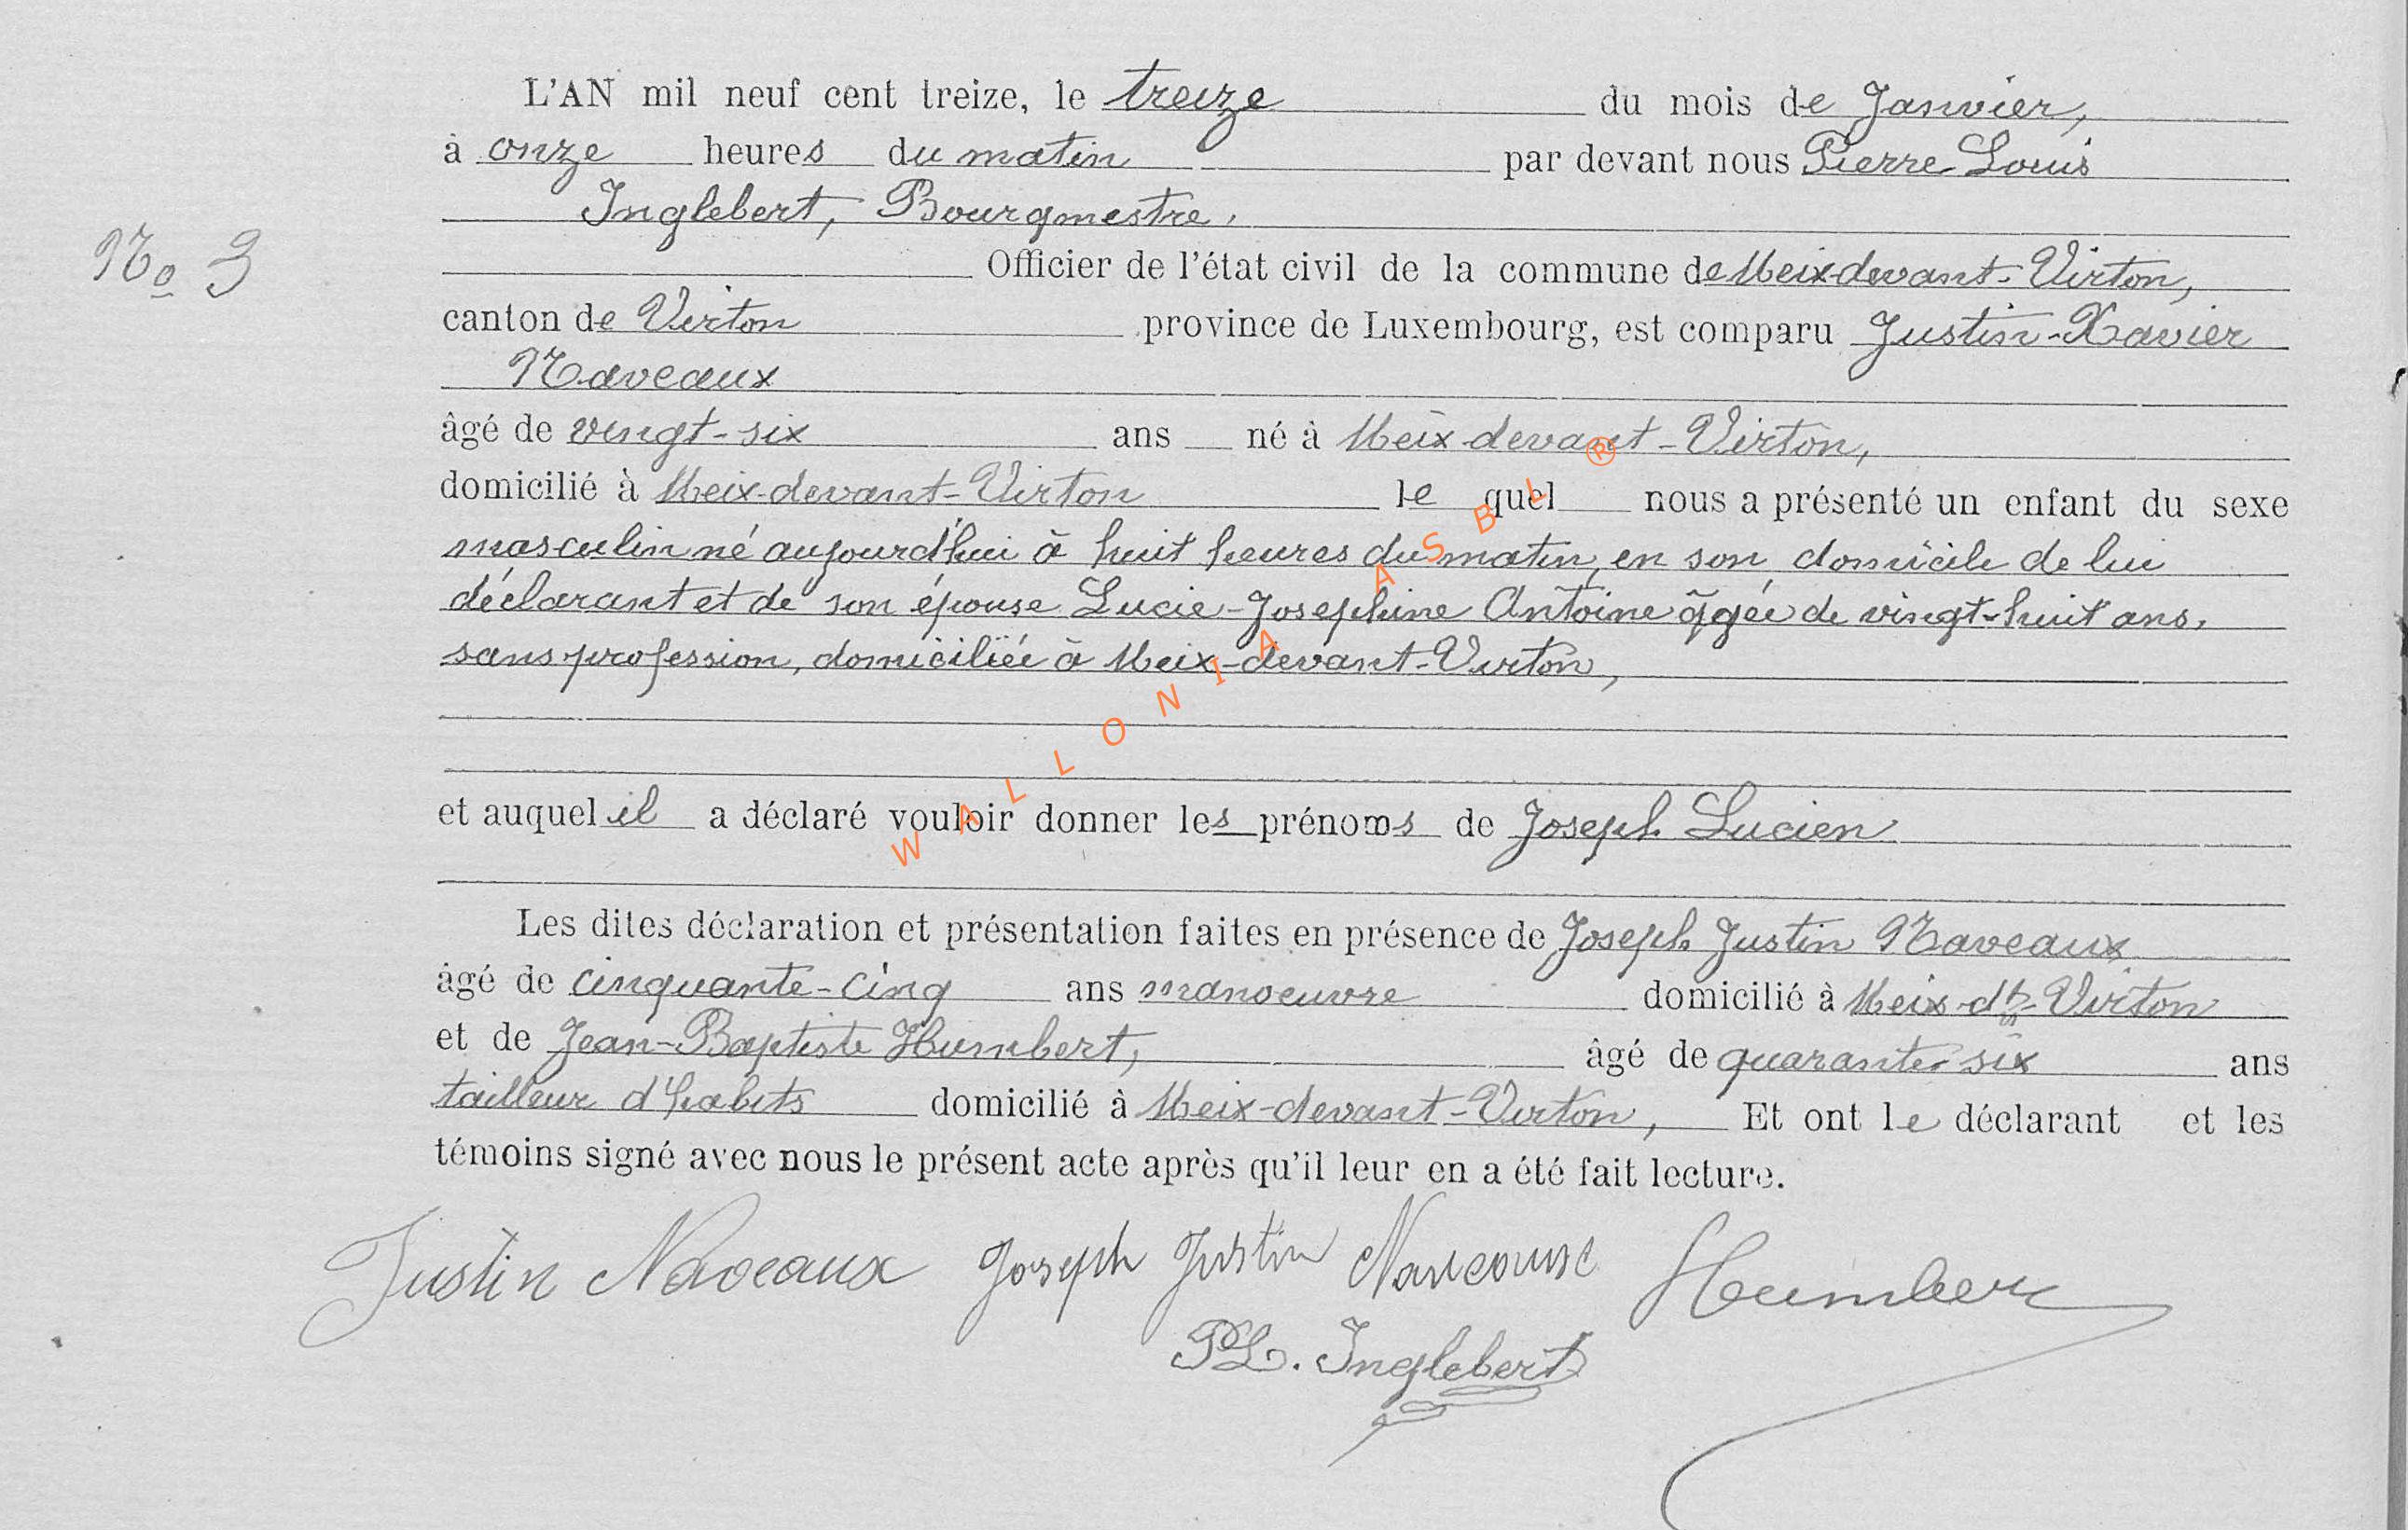 L'AN mil neuf cent treize, le treize du mois de Janvier,
à onze heures du matin par devant nous Pierre Louis
Inglebert, Bourgmestre,
No 3
Officier de l'état civil de la commune de Meix-devant-Virton,
canton de Virton province de Luxembourg, est comparu Justin-Xavier
Naveaux
âgé de vingt-six ans né à Meix-devant-Virton,
domicilié à Meix-devant-Virton lequel nous a présenté un enfant du sexe
masculin né aujourd'hui à huit heures du matin, en son domicile de lui
déclarant et de son épouse Lucie-Josephine Antoine âgée de vingt-huit ans,
sans profession, domiciliée à Meix-devant-Virton,
et auquel il a déclaré vouloir donner les prénoms de Joseph Lucien
Les dites déclaration et présentation faites en présence de Joseph Justin Naveaux
âgé de cinquante-cinq ans manoeuvre domicilié à Meix-dt-Virton
et de Jean-Baptiste Humbert, âgé de quarante-six ans
tailleur d'habits domicilié à Meix-devant-Virton, Et ont le déclarant et les
témoins signé avec nous le présent acte après qu'il leur en a été fait lecture.
Justin Naveaux Joseph Justin Naveaux Humbert
PL. Inglebert
WALLONIA ASBL ®